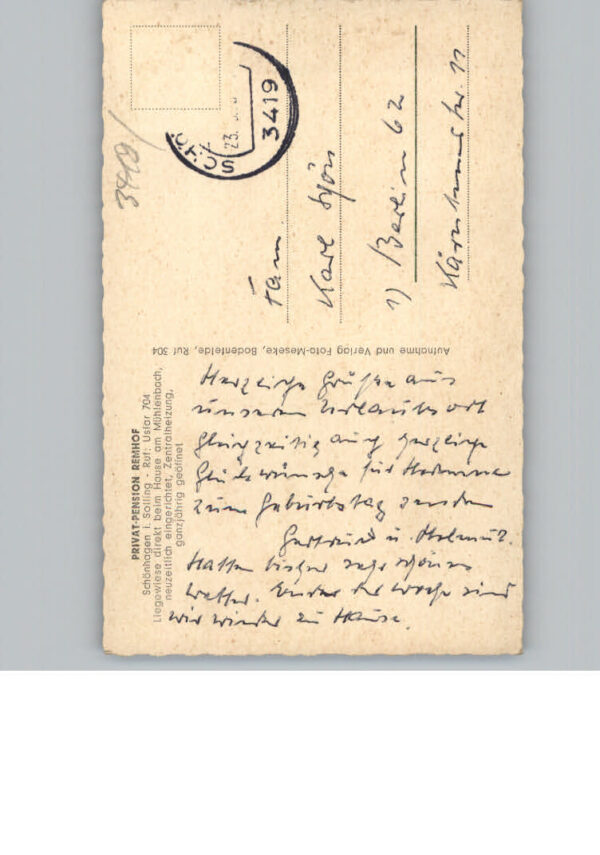 PRIVAT-PENSION REMHOF
Schönhagen i. Solling - Ruf: Uslar 704
Liegewiese direkt beim Hause am Mühlenbach,
neuzeitlich eingerichtet, Zentralheizung,
ganzjährig geöffnet
Herzliche Grüße aus
unserem Urlaubsort
gleichzeitig auch herzliche
Glückwünsche für
zum Geburtstag senden
Gertraud u. Helmut.
Hatten bisher sehr schönes
Wetter. Ende der Woche sind
wir wieder zu Hause.
Aufnahme und Verlag Foto-Meseke, Bodenfelde, Ruf 304
3419
23.
3419
Fam.
Karl
1) Berlin 62